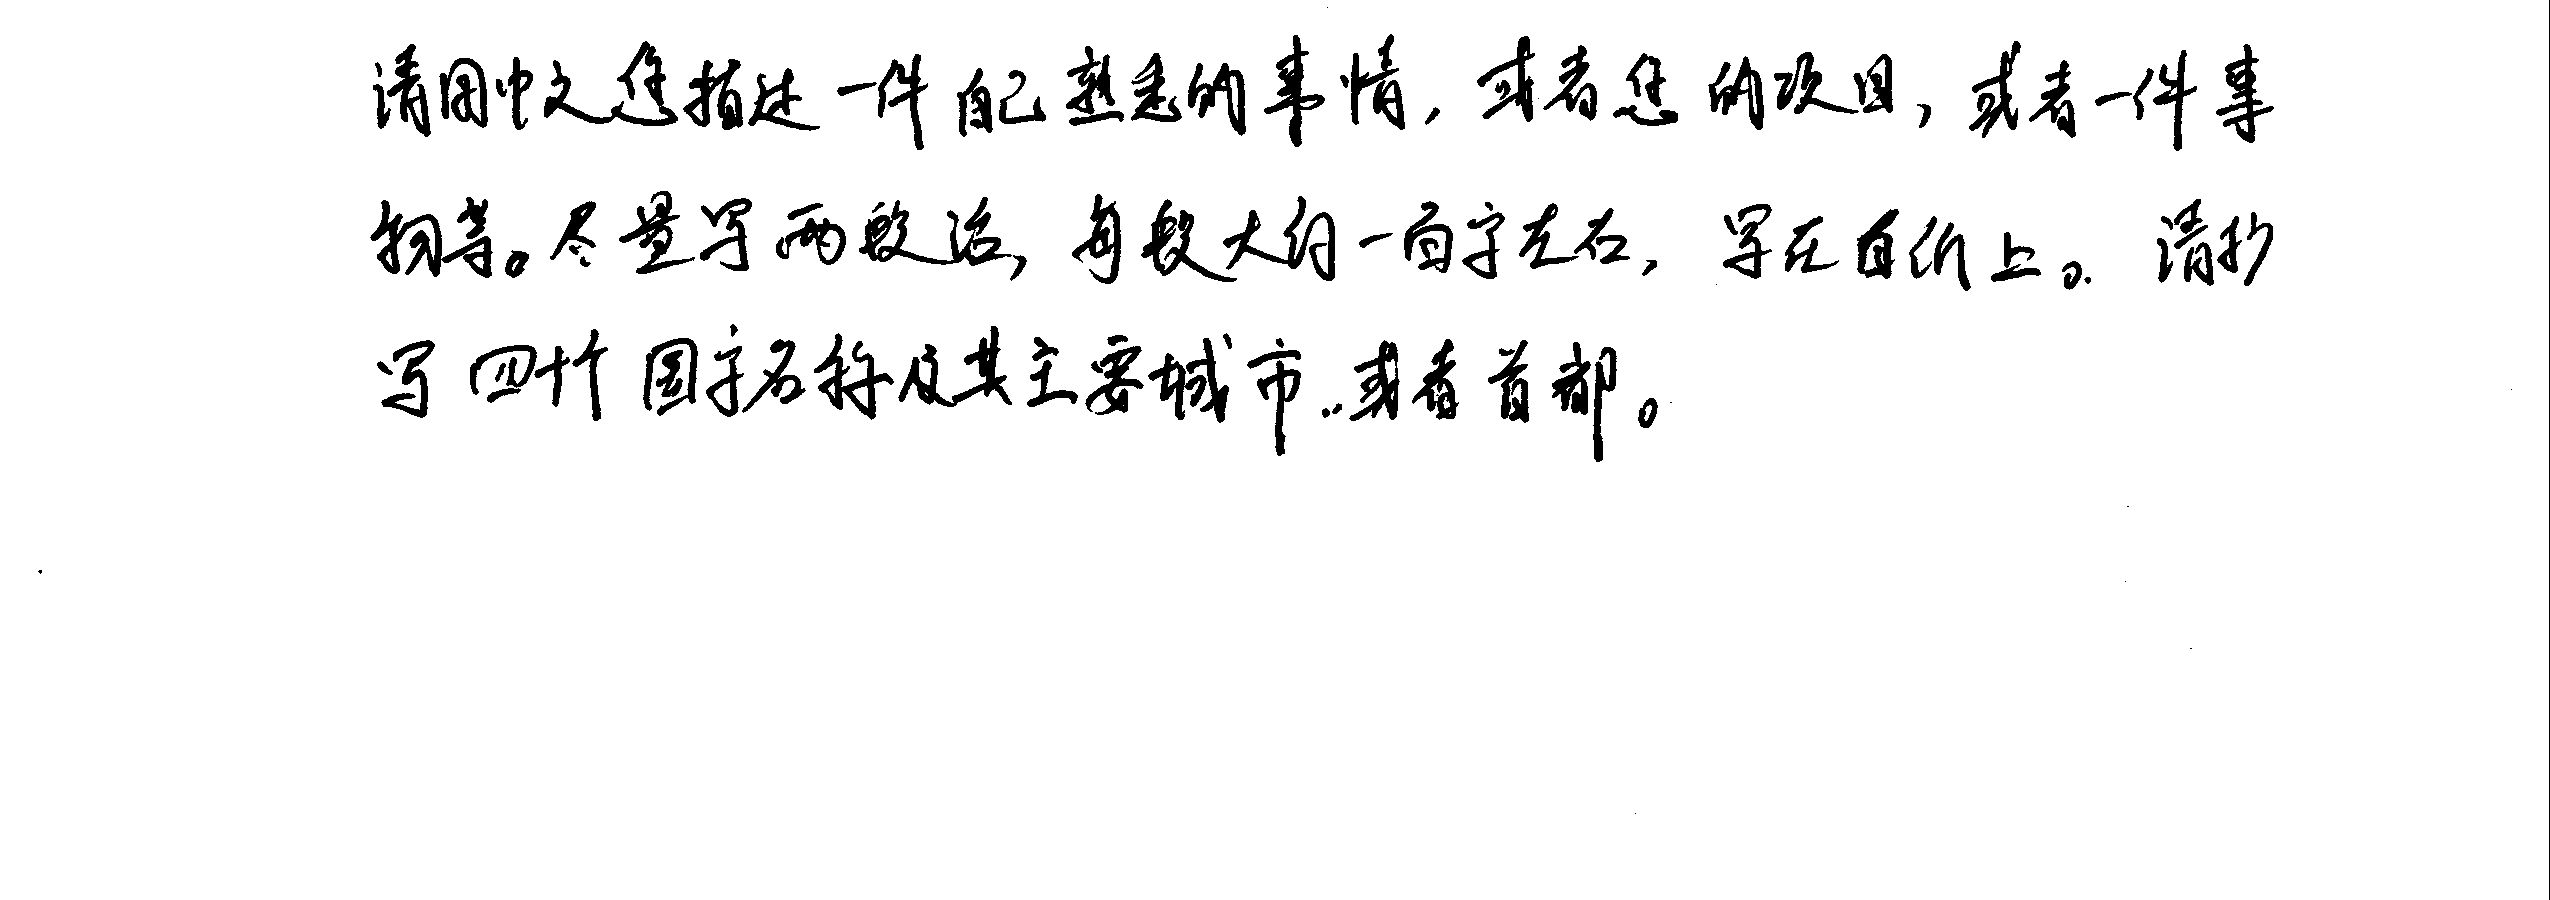 请用中文您描述一件自己熟悉的事情,或者您的项目,或者一件事
物等。尽量写两段话,每段大约一百字左右,写在白纸上。请抄
写四十个国家名称及其主要城市..或者首都。